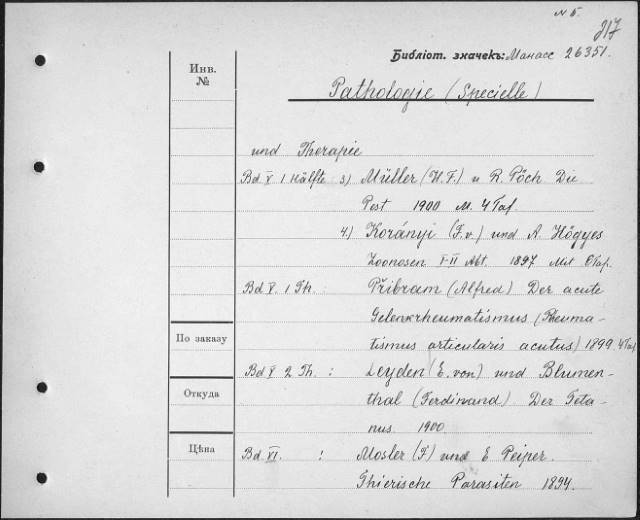 N 5.
217
Библіот. значекъ: Манасс 26351.
Инв.
№
Pathologie (Specielle)
und Therapie
Bd V 1 Hälfte 3) Müller (H. F.) u R. Pöch Die
Pest 1900 M. 4 Taf
4.) Korányi (F. v.) und A. Högyes
Zoonosen I-II Abt. 1897 Mit Taf.
Bd V. 1 Th: Přibram (Alfred) Der acute
Gelenkrheumatismus (Rheuma-
tismus articularis acutus) 1899. 4 Taf
По заказу
Bd V 2 Th.: Leyden (E. von) und Blumen-
thal (Ferdinand) Der Teta-
nus. 1900
Откуда
Цѣна
Bd. VI. : Mosler (F) und E Peiper.
Thierische Parasiten 1894.